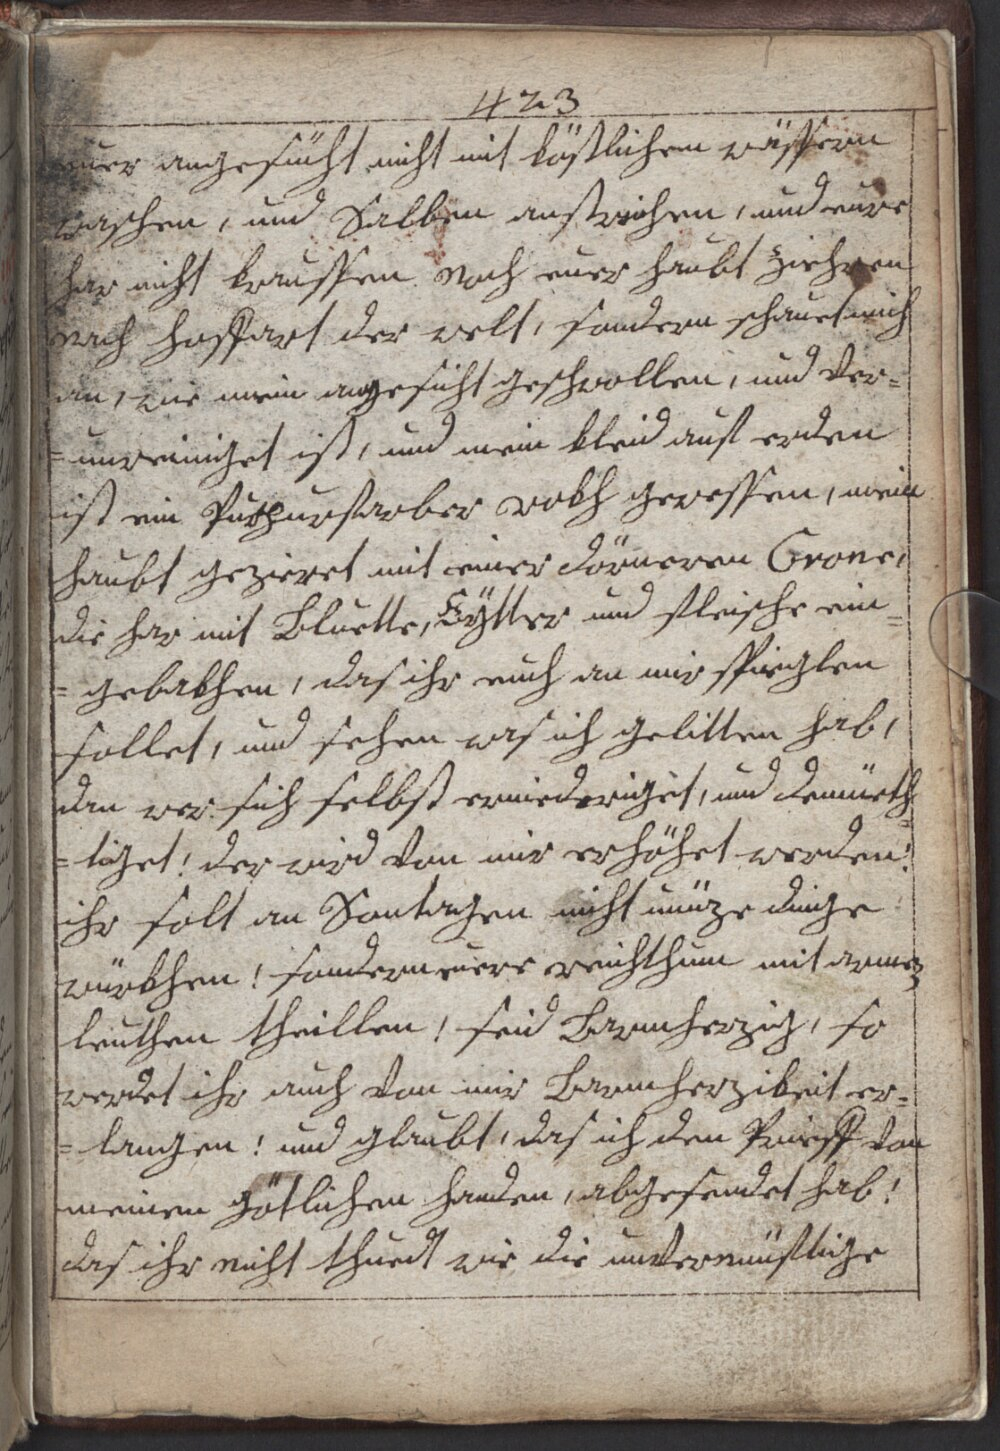 423
euer angesücht nicht mit köstlichem wässern
waschen, und Salben anstreichen, und eure
har nicht kraussen Noch euer haubt ziehren
nach hoffart der welt, sondern schauet mich
an, wie mein angesicht geschwollen, und ver=
=unreiniget ist, und mein kleid auf erden
ist ein Purpurfarber rokh gewessen, mein
haubt gezieret mit einer dörneren Crone,
die har mit Bluette, Eÿtter und fleische ein=
=gebakhen, das ihr euch an mir spieglen
sollet, und sehen was ich gelitten hab,
dan wer sich selbst erniedriget, und demüeth=
=tiget! der wird von mir erhöhet werden!
ihr solt an Sontagen nicht unüze dinge
würkhen! sondern euere reichthum mit armen
leuthen theillen! seid Barmherzig, so
werdet ihr auch von mir Barmherzikeit er=
=langen! und glaubt, das ich den Brieff von
meinen götlichen handen, abgesendet hab!
das ihr nicht thuedt wie die unvernünftige